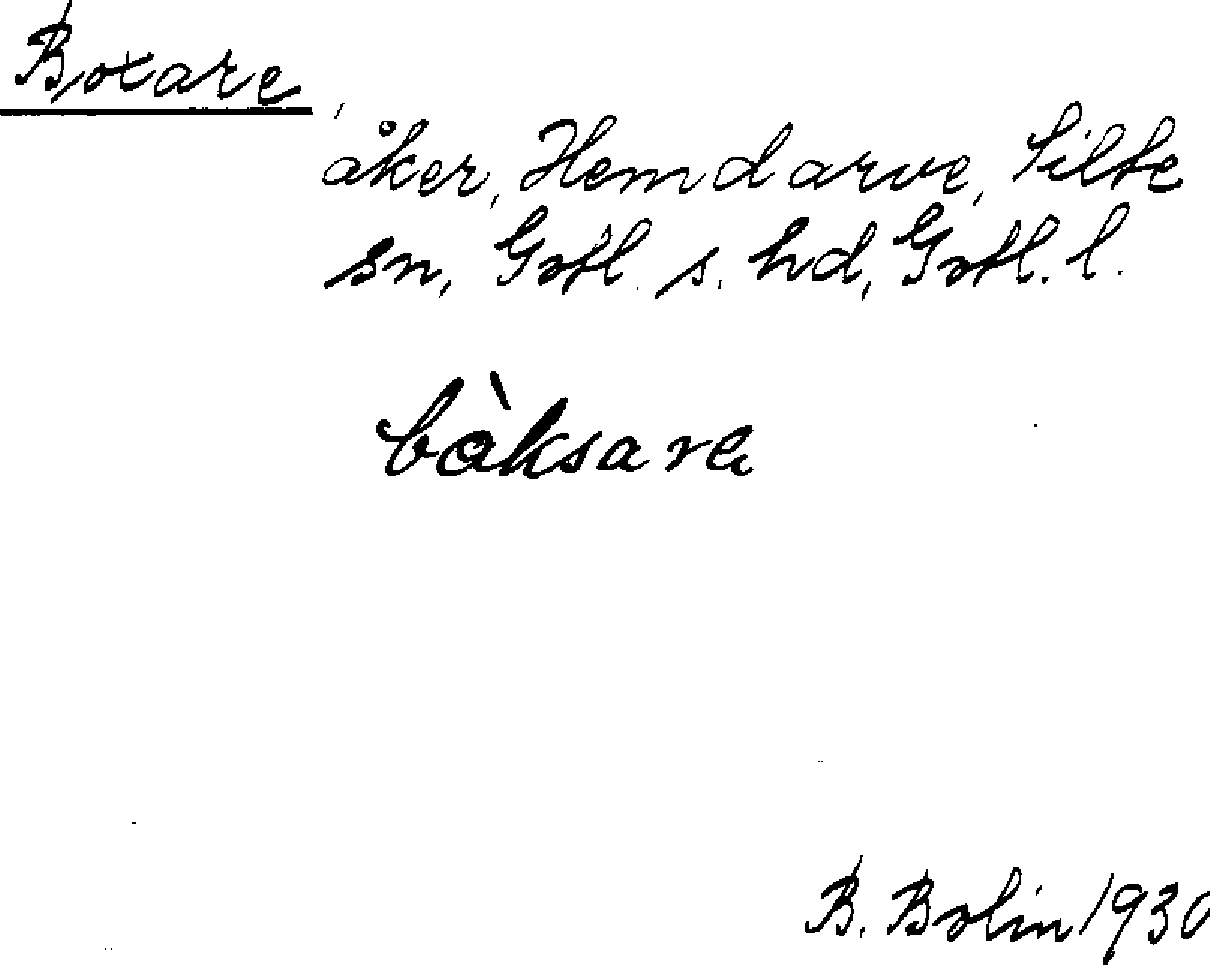 Boxare,
åker, Hemdarve, Silte
sn, Gotl. s. hd, Gotl. l.
bàksara
B. Bolin 1930